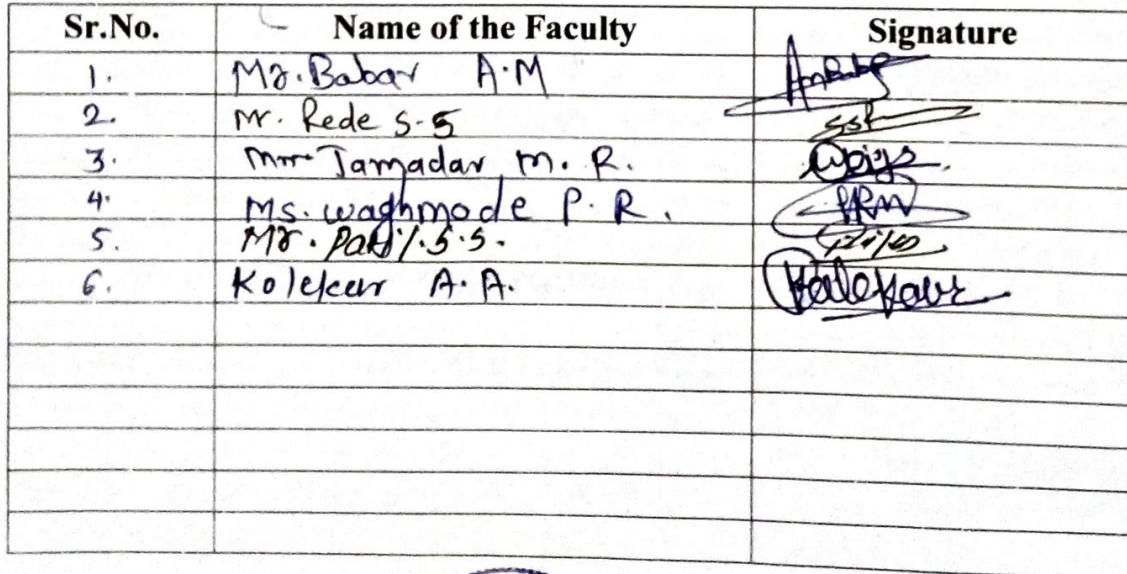 Sr.No. Name of the Faculty Signature
1. Mr. Babar A.M
2. Mr. Rede S.S
3. Mr Jamadar M. R.
4. Ms. Waghmode P. R. PRW
5. Mr. Patil S.S.
6. Kolekar A.A. Kolekar